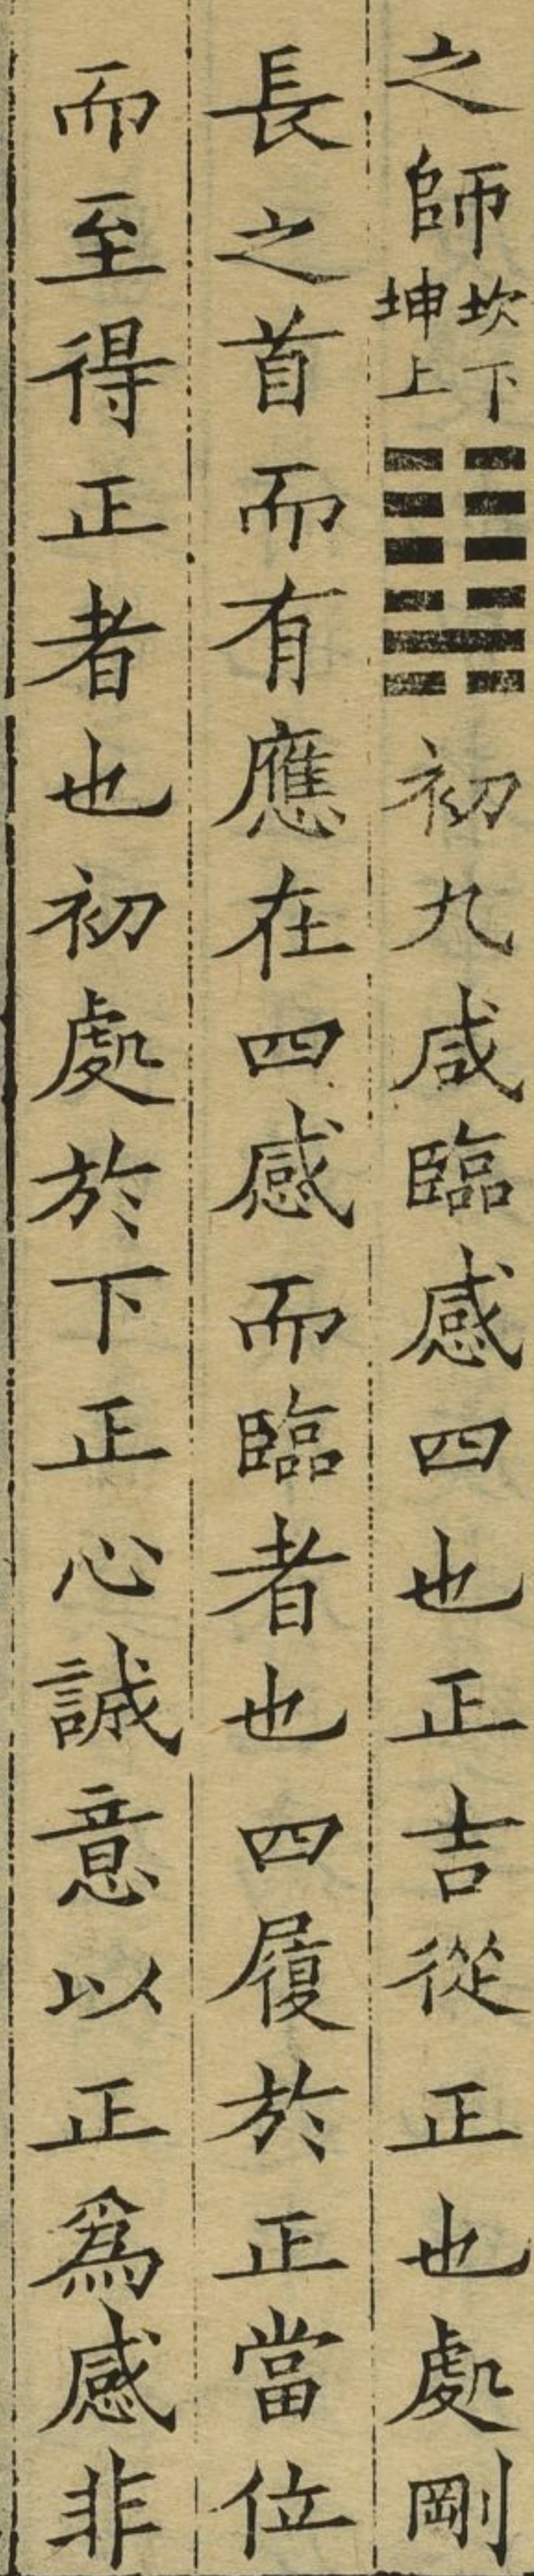 之師坎下坤上䷆初九咸臨感四也正吉從正也處剛
長之首而有應在四感而臨者也四履於正當位
而至得正者也初處於下正心誠意以正爲感非